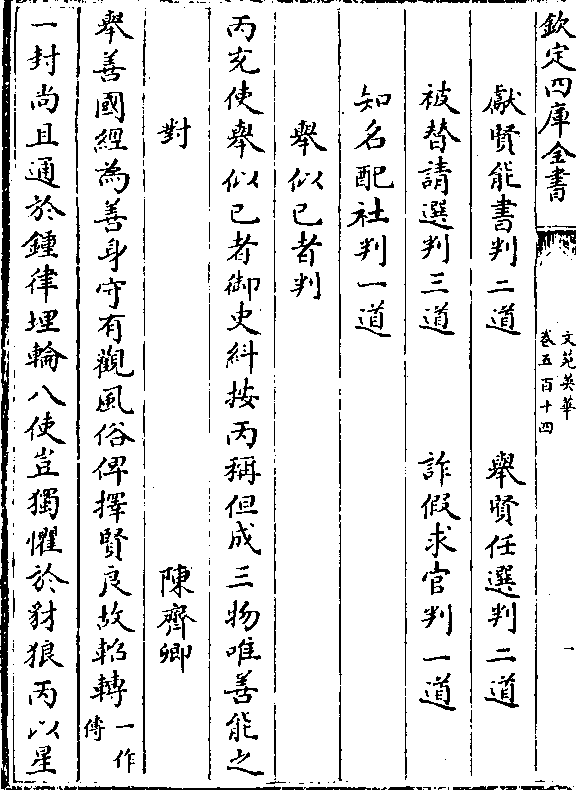 欽定四庫全書
文苑英華
卷五百十四
一
獻賢能書判二道 舉賢任選判二道
被替請選判三道 詐假求官判一道
知名配社判一道
舉似已者判
丙充使舉似已者御史糾按丙稱但成三物唯善能之
對 陳齊卿
舉善國經為善身守有觀風俗俾擇賢良故軺轉一作傳
一封尚且通於鍾律埋輪八使豈獨懼於豺狼丙以星